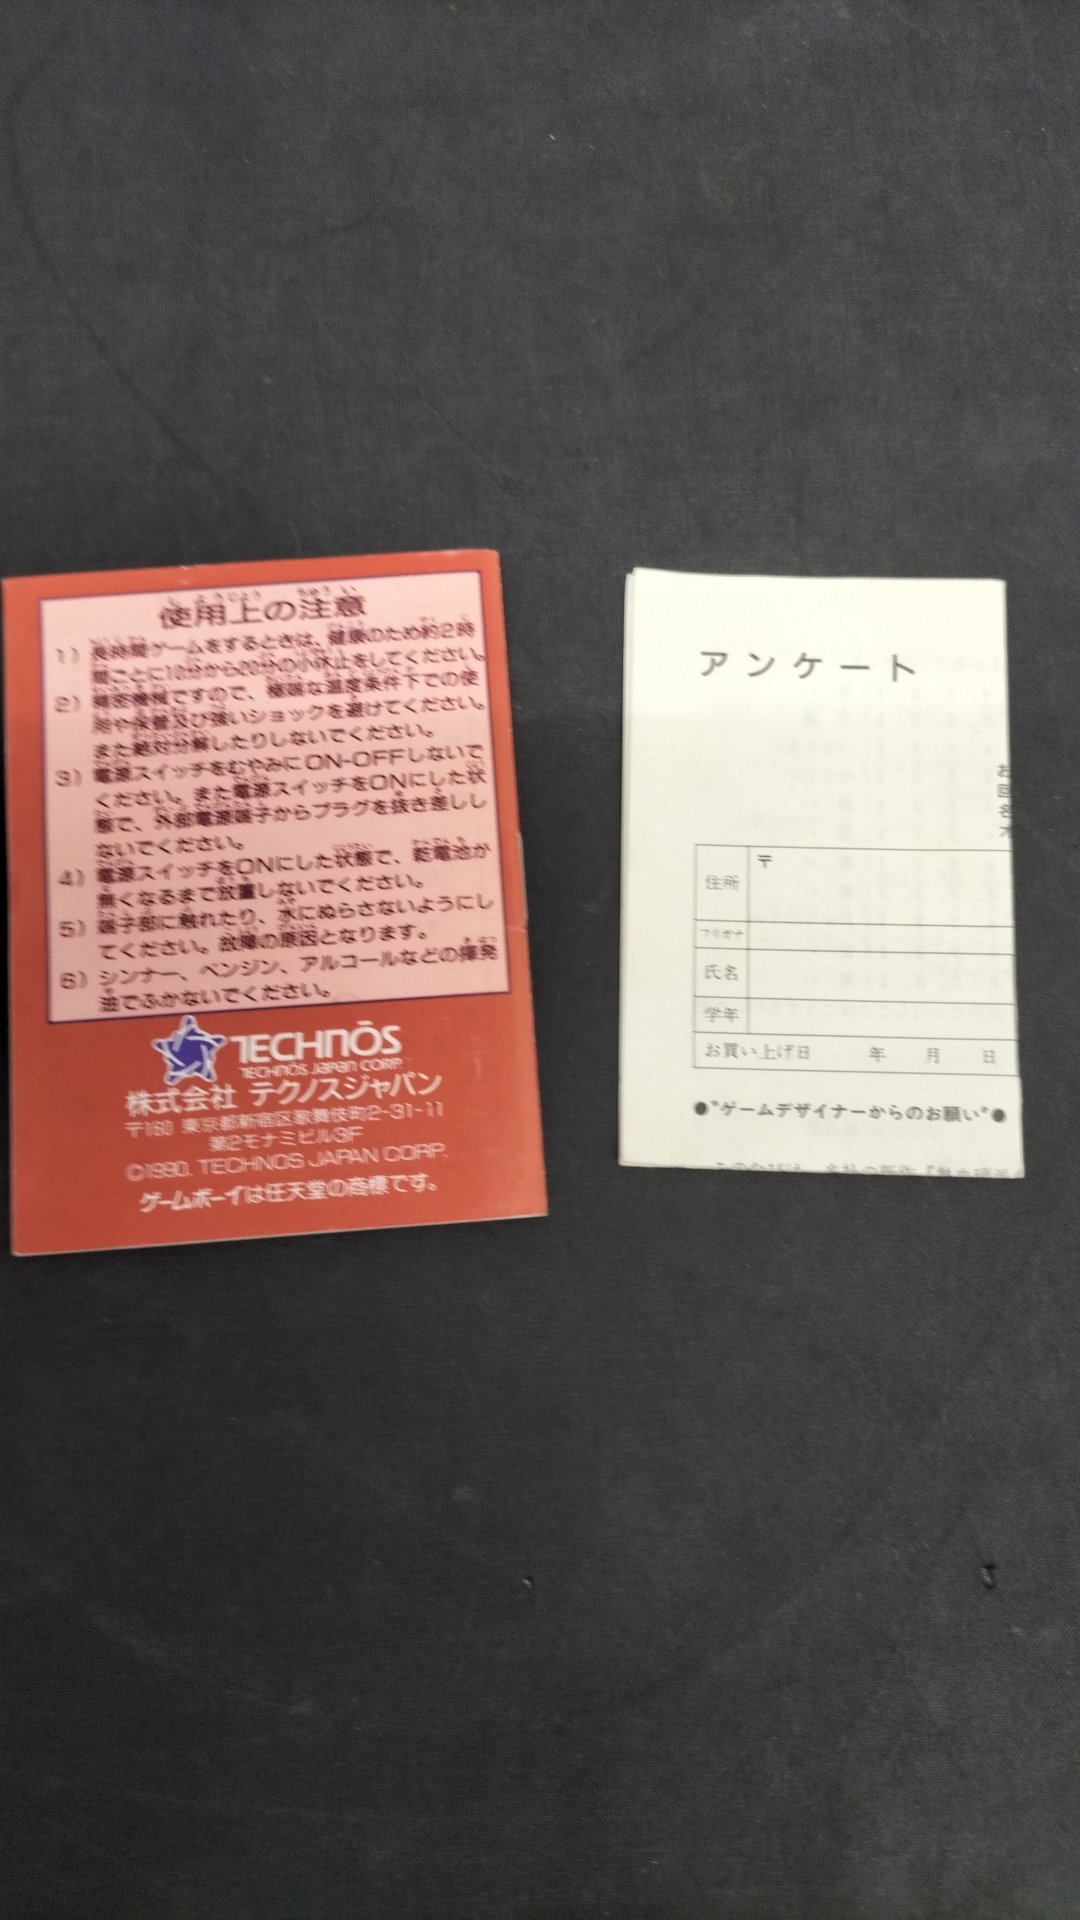 使用上の注意
1）長時間ゲームをするときは、健康のため約2時
間ごとに10分から20分の小休止をしてください。
2）精密機械ですので、極端な温度条件下での使
用や保管及び強いショックを避けてください。
また絶対分解したりしないでください。
3）電源スイッチをむやみにON-OFFしないで
ください。また電源スイッチをONにした状
態で、外部電源端子からプラグを抜き差しし
ないでください。
4）電源スイッチをONにした状態で、乾電池が
無くなるまで放置しないでください。
5）端子部に触れたり、水にぬらさないようにし
てください。故障の原因となります。
6）シンナー、ベンジン、アルコールなどの揮発
油でふかないでください。
TECHNŌS
TECHNŌS JAPAN CORP.
株式会社 テクノスジャパン
〒160 東京都新宿区歌舞伎町2-31-11
第2モナミビル3F
©1990. TECHNOS JAPAN CORP.
ゲームボーイは任天堂の商標です。
アンケート
住所 〒
フリガナ
氏名
学年
お買い上げ日 年 月 日
●"ゲームデザイナーからのお願い"●